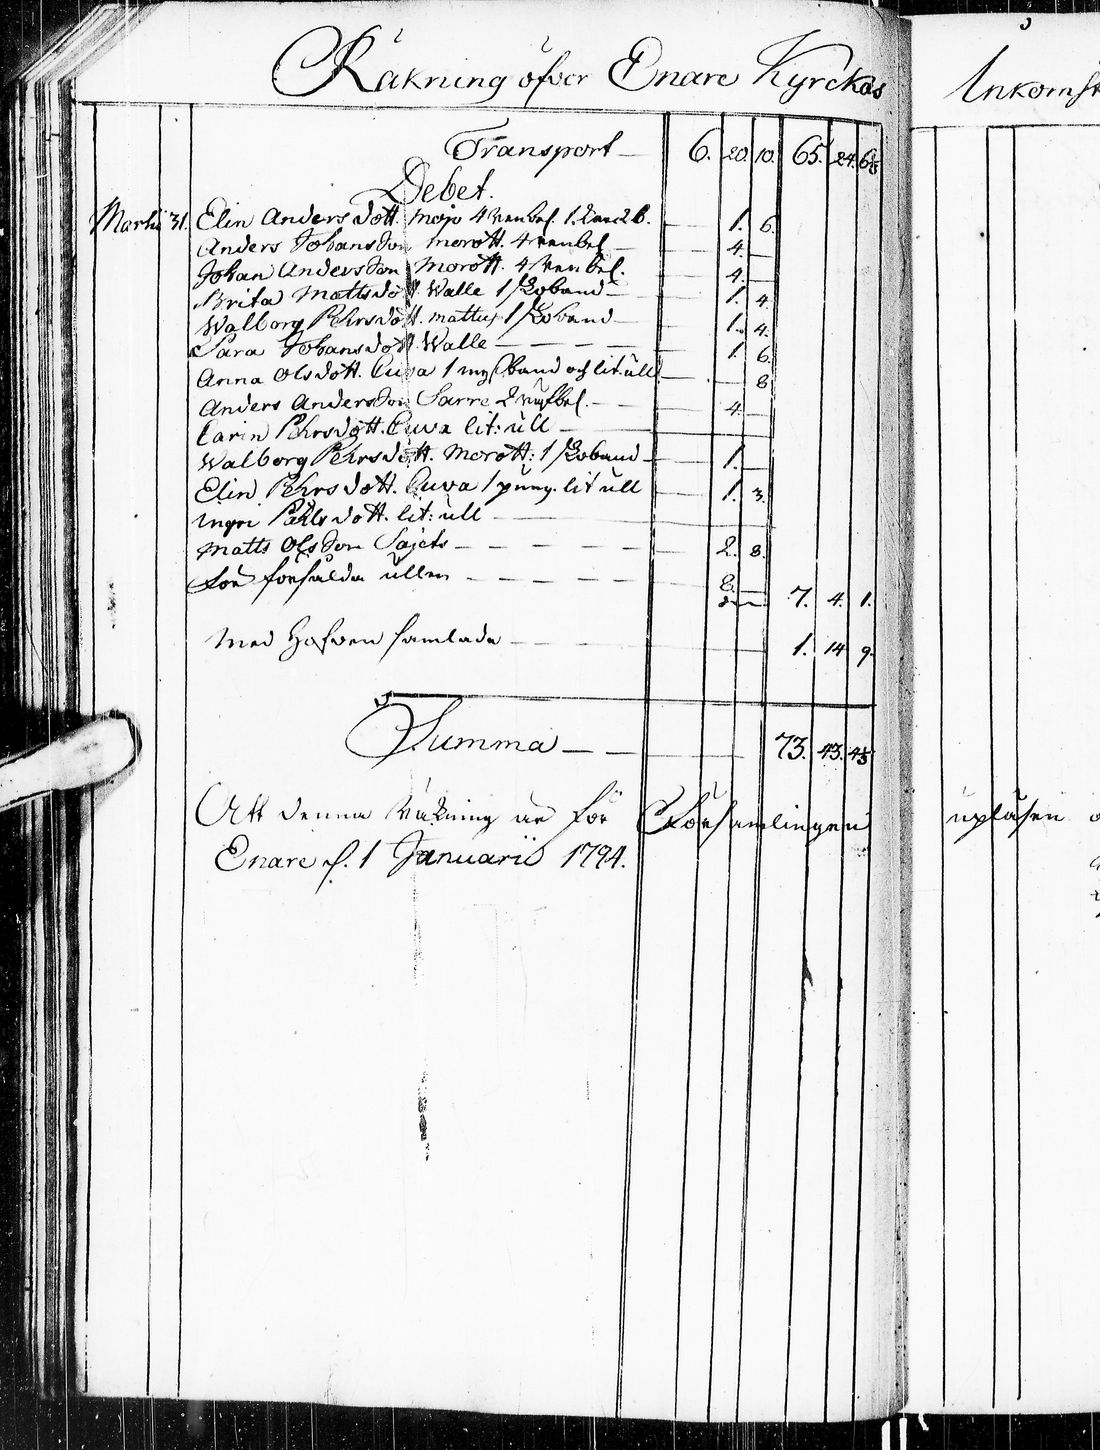 Räkning öfver Enare Kyrckas
Transport — 6. 20. 10. 65. 24. 6 8/5
Debet.
Martii 31. Elin Anders dott. Mojo 4 renbel. 1. 1. 6.
Anders Johansson morott. 4 renbel — 4. —
Johan Andersson Morott. 4 renbel. — 4. —
Brita Mattsdott Walle 1 skoband — 1. 4.
Walborg Pehrsdott. mattus 1 skoband — 1. 4.
Sara Johansdott Walle — — — — 1. 6.
Anna Olsdott. Cuva 1 band och lit: ull — 8
Anders Andersson Sarre 2 — 4. —
Carin Pehrsdott. Cuva lit: ull —
Walborg Pehrsdott. Morott: 1 skoband — 1. —
Elin Pehrsdott. Cuva 1 pung. lit ull — 1. 3.
Ingri Påhlsdott. lit: ull —
Matts Olsson Sajets — — — — 2. 8.
För försålda ullen — — — — 8. — 7. 4. 1.
Med Hofven samlade — — — 1. 14 9.
Summa — — 73. 43. 4
Att denna räkning är för Församlingen
Enare d. 1 Januarii 1794.
Inkomst
upläsen